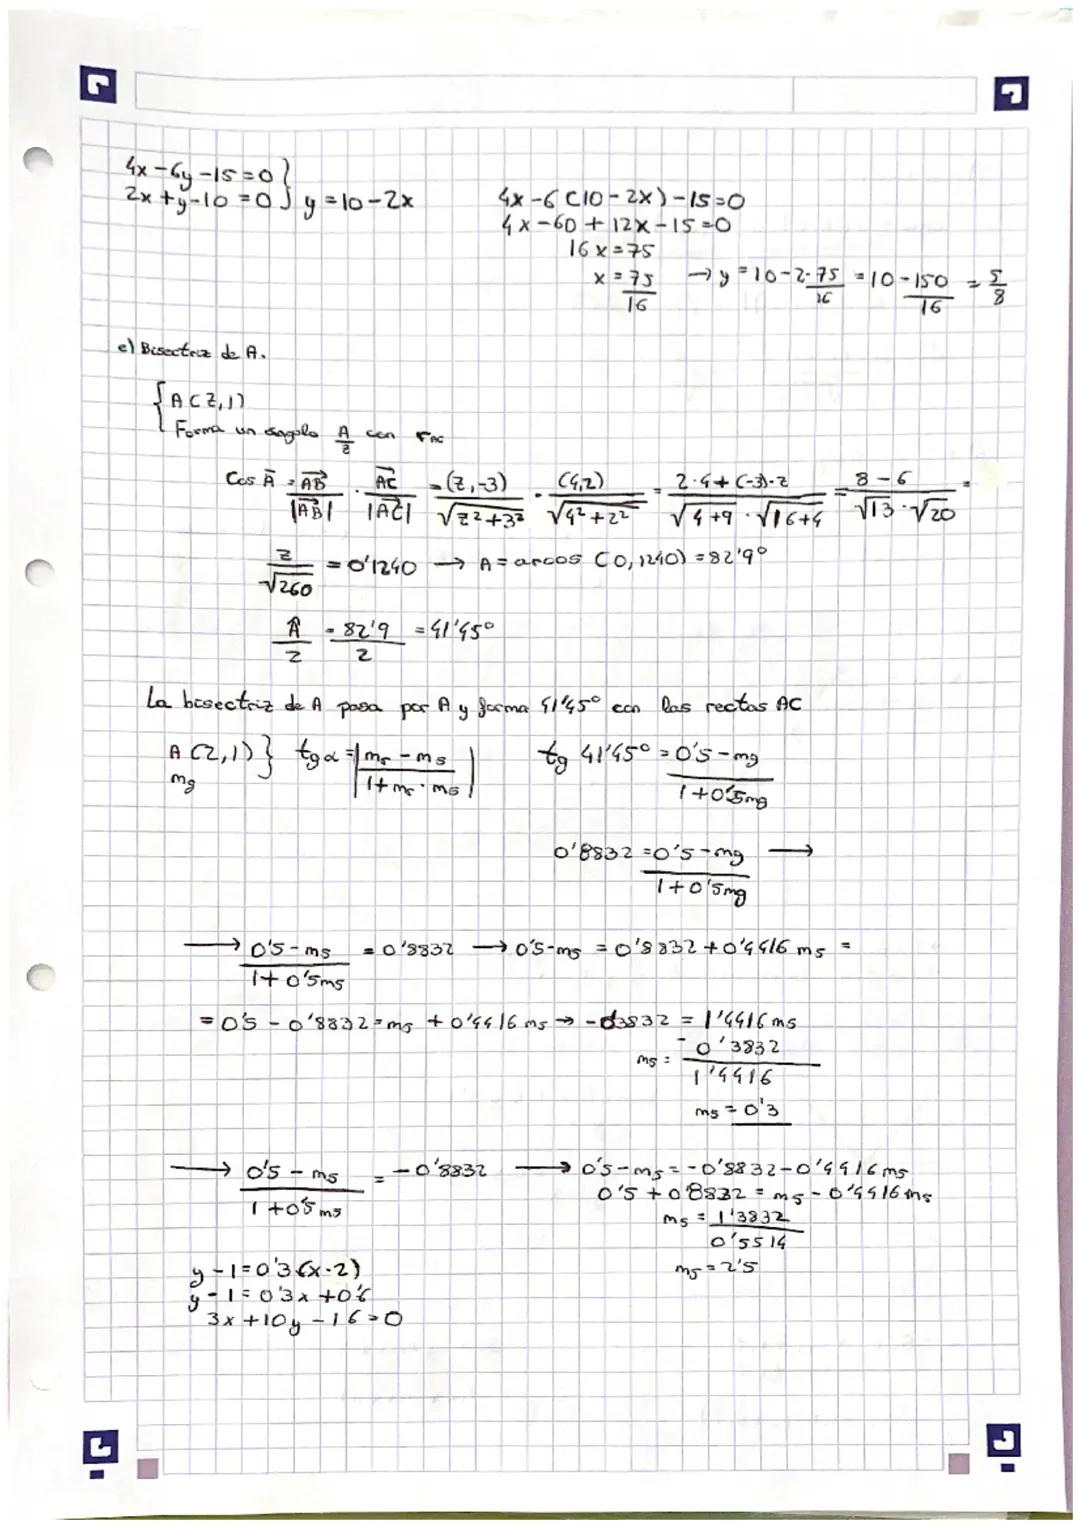 4x-6y-15=0 }
2x+y-10=0 } y=10-2x
4x-6(10-2x)-15=0
4x-60+12x-15=0
16x=75
x=75/16 → y=10-2·75/16 =10-150/16 = 5/8
e) Bisectriz de A.
{ A(2,1)
Forma un ángulo A/2 con rAC
Cos Â = AB/|AB| · AC/|AC| = (2,-3)/√2²+3² · (4,2)/√4²+2² = 2·4+(-3)·2/√4+9·√16+4 = 8-6/√13·√20 =
2/√260 = 0'1240 → A=arcos (0,1240)=82'9º
Â/2 = 82'9/2 = 41'45º
La bisectriz de A pasa por A y forma 41'45º con las rectas AC
A(2,1) } tgα = |mr-ms/1+mr·ms| tg 41'45º = 0'5-ms/1+0'5ms
ms
0'8832 = 0'5-ms/1+0'5ms →
→ 0'5-ms/1+0'5ms = 0'8832 → 0'5-ms = 0'8832+0'4416ms =
= 0'5-0'8832=ms+0'4416ms → -0'3832 = 1'4416ms
ms = -0'3832/1'4416
ms = 0'3
→ 0'5-ms/1+0'5ms = -0'8832 → 0'5-ms=-0'8832-0'4416ms
0'5+0'8832=ms-0'4416ms
ms = 1'3832/0'5514
ms=2'5
y-1=0'3(x-2)
y-1=0'3x+0'6
3x+10y-16=0